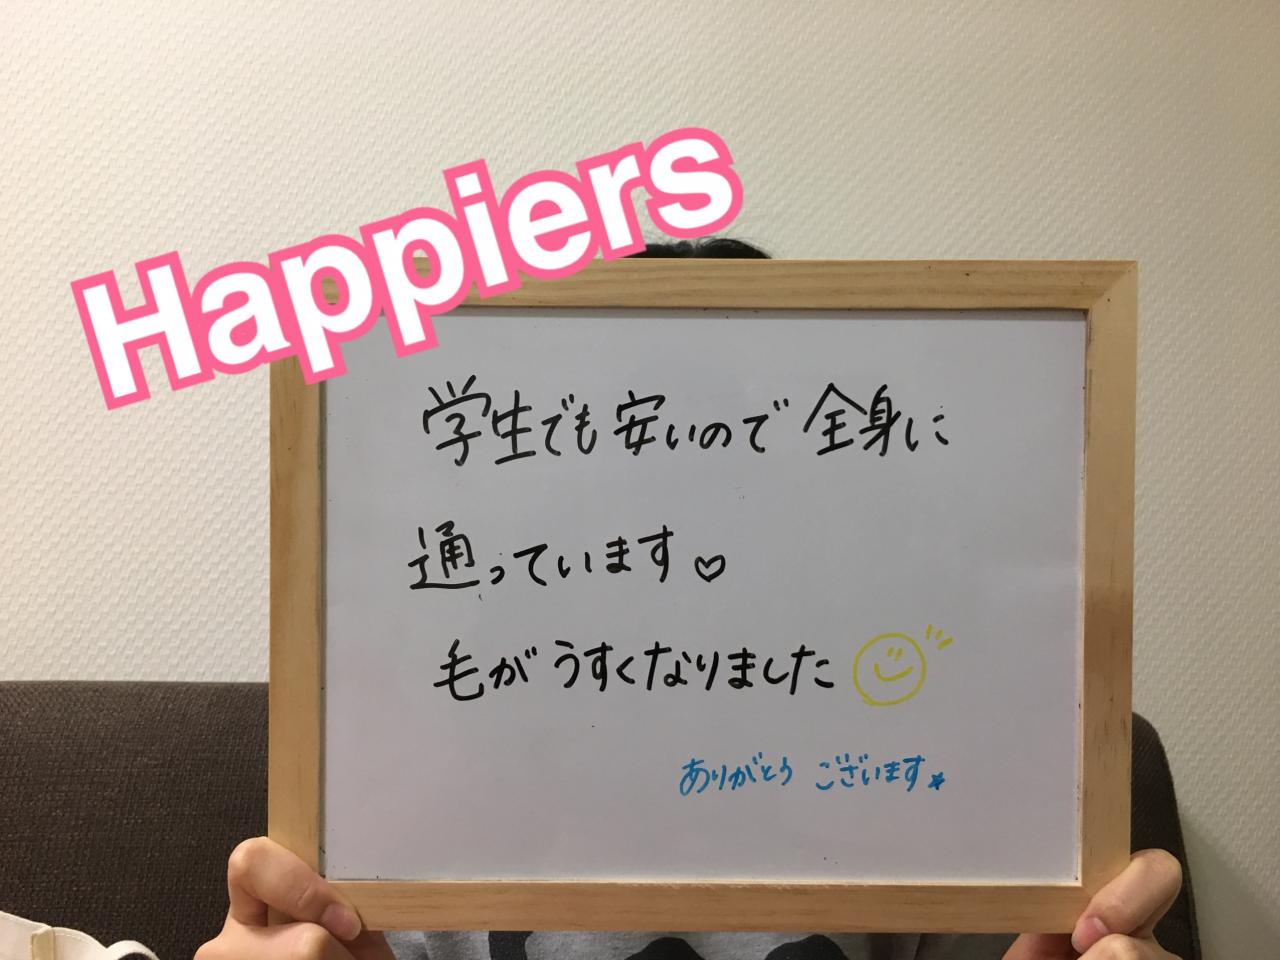 Happiers
学生でも安いので全身に
通っています♡
毛がうすくなりました
ありがとうございます★